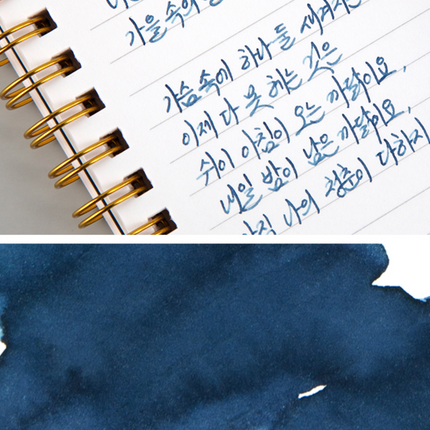 가을 속의
가슴 속에 하나 둘 새겨지는
이제 다 못 헤는 것은
쉬이 아침이 오는 까닭이요,
내일 밤이 남은 까닭이요,
아직 나의 청춘이 다하지